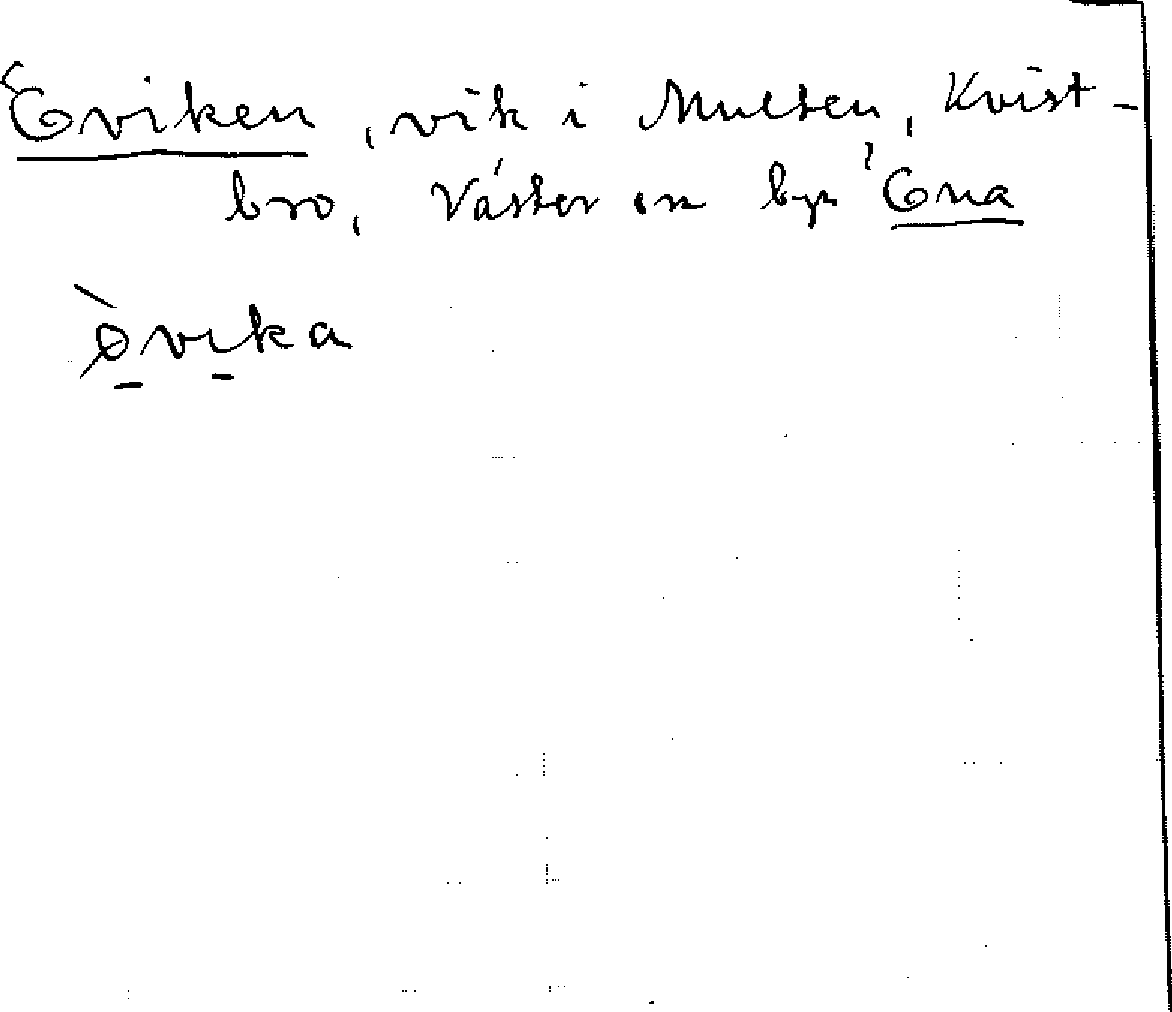 Öviken, vik i Multen, Kvist-
bro, Väster om byn Öna
ø̀vika